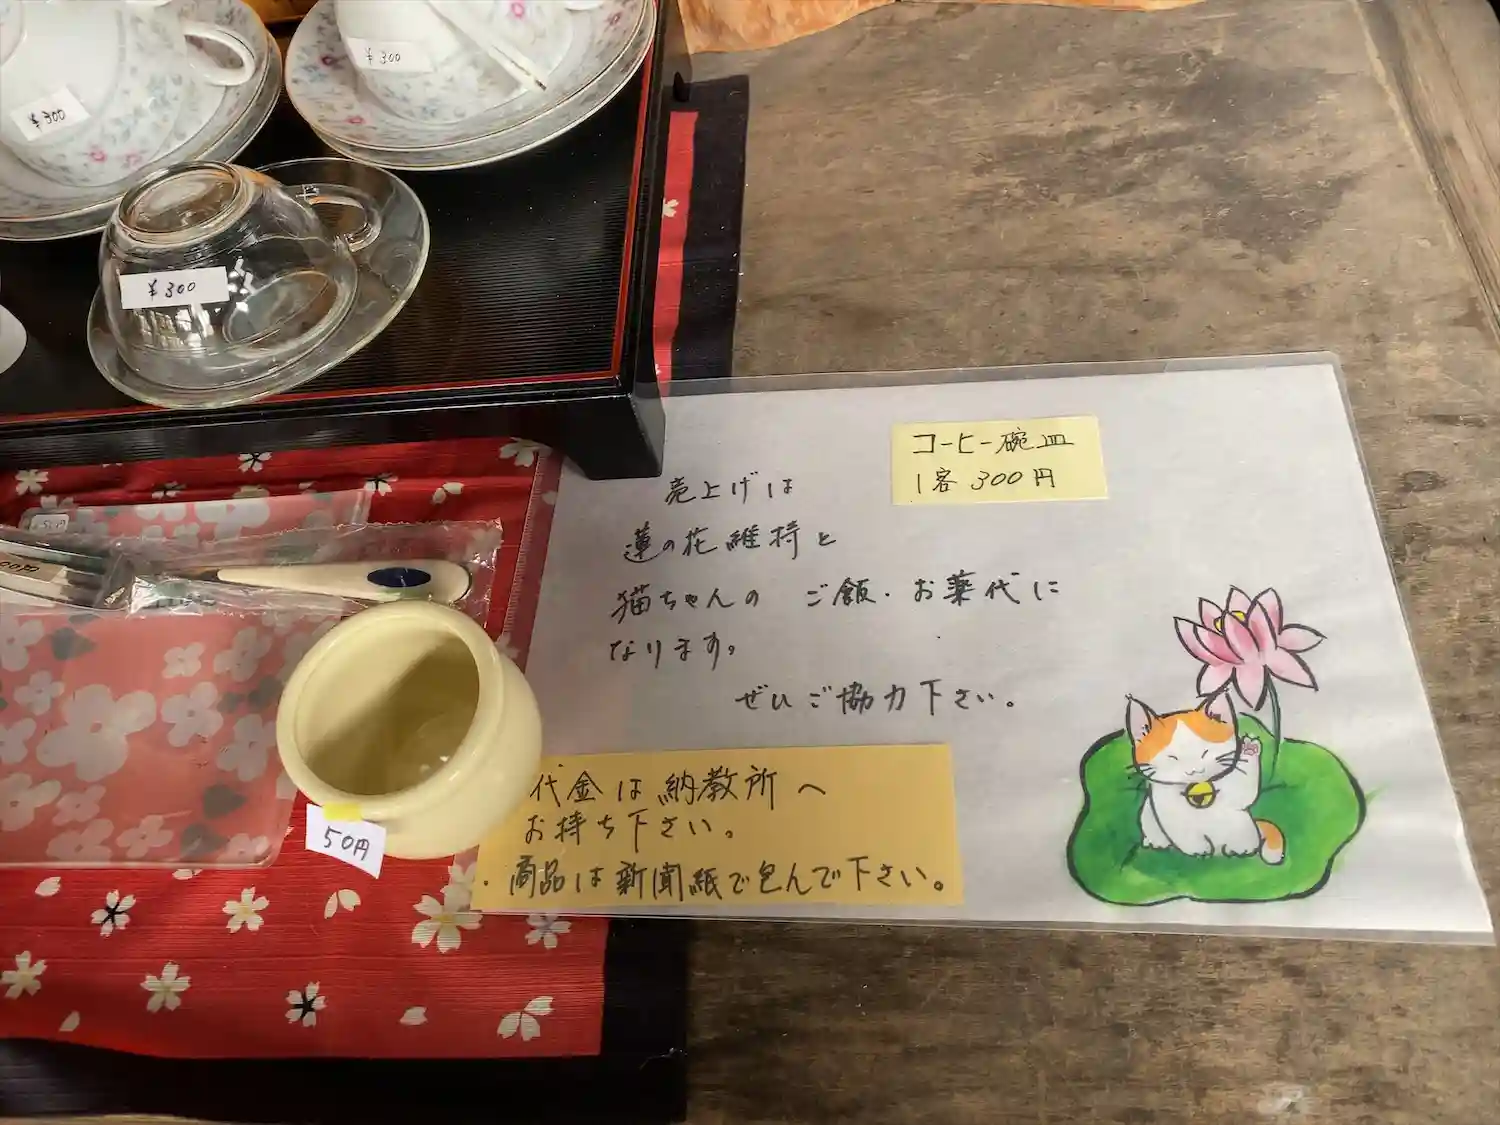 ¥300
¥300
¥300
コーヒー碗皿
1客 300円
売上げは
蓮の花維持と
猫ちゃんの ご飯・お薬代に
なります。
ぜひご協力下さい。
代金は納教所へ
お持ち下さい。
・商品は新聞紙で包んで下さい。
50円